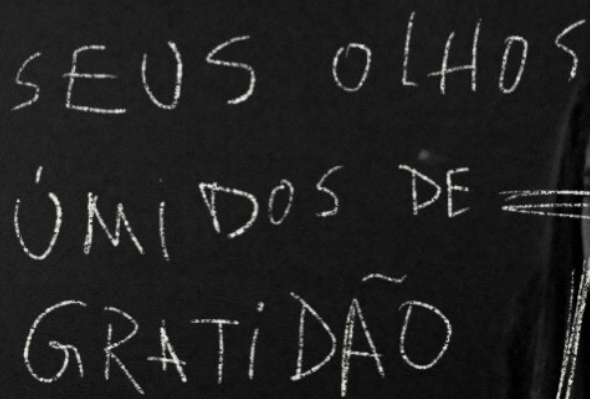 SEUS OLHOS
ÚMiDOS DE
GRATiDÃO